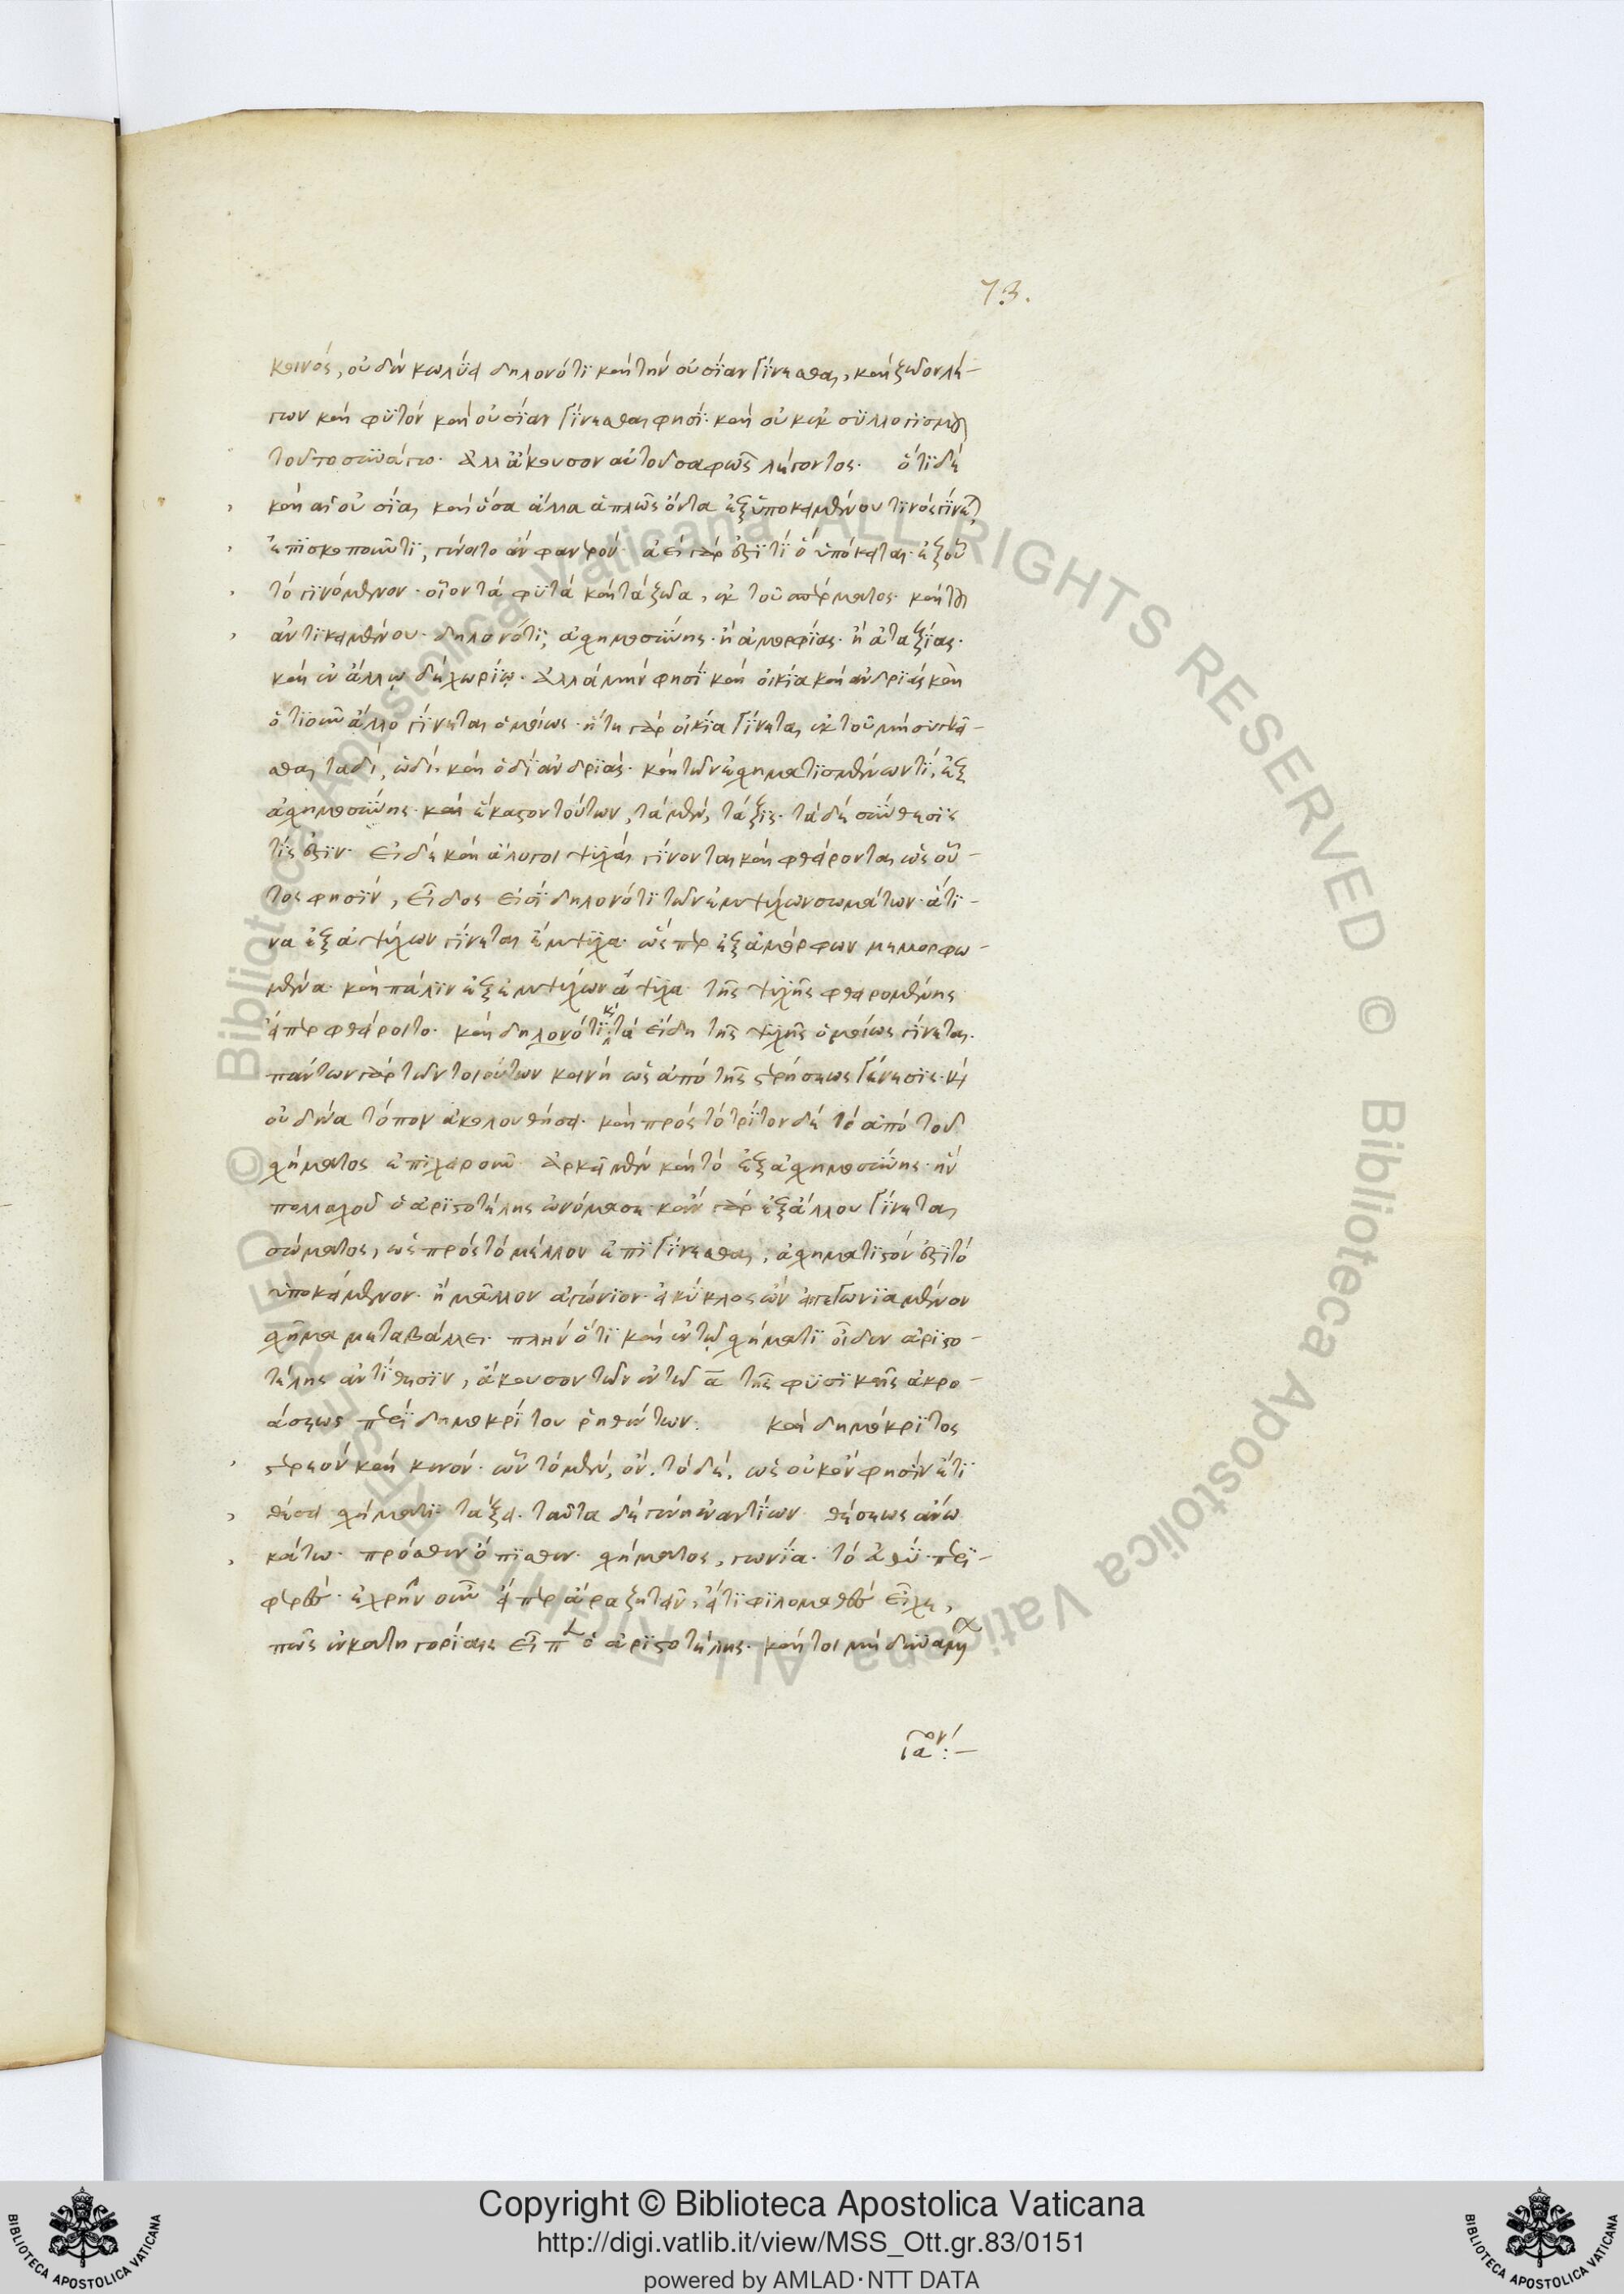 73.
κεινός, οὐδὲν κωλύει δηλονότι καὶ τὴν οὐσίαν γίνεσθαι, καὶ ζῷον λέ-
γων καὶ φυτὸν καὶ οὐσίαν γίνεσθαι φησί· καὶ οὐκ ἐκ συλλογισμοῦ
τοῦτο συνάγω· ἀλλ' ἄκουσον αὐτοῦ σαφῶς λέγοντος· ὅτι δὲ
καὶ αἱ οὐσίαι καὶ ὅσα ἄλλα ἁπλῶς ὄντα ἐξ ὑποκειμένου τινὸς γίνεται,
ἐπισκοποῦντι, γένοιτο ἂν φανερόν· ἀεὶ γὰρ ἐστί τι ὃ ὑπόκειται· ἐξ οὗ
τὸ γινόμενον· οἷον τὰ φυτὰ καὶ τὰ ζῷα, ἐκ τοῦ σπέρματος· καὶ τοῦ
ἀντικειμένου· δηλονότι, ἀσχημοσύνης· ἢ ἀμορφίας· ἢ ἀταξίας·
καὶ ἐν ἄλλῳ δὲ χωρίῳ· ἀλλὰ μὴν φησὶ καὶ οἰκία καὶ ἀνδριὰς καὶ
ὁτιοῦν ἄλλο γίνεται ὁμοίως· ἥτε γὰρ οἰκία γίνεται ἐκ τοῦ μὴ συγκεῖ-
σθαι ταδὶ, ὡδί· καὶ ὁ δὶ ἀνδριάς· καὶ τῶν ἐσχηματισμένων τι, ἐξ
ἀσχημοσύνης· καὶ ἕκαστον τούτων, τὰ μὲν, τάξις· τὰ δὲ σύνθεσις
τίς ἐστιν· εἰ δὲ καὶ ἄλογοι ψυχαὶ γίνονται καὶ φθείρονται ὡς οὗ-
τος φησὶν, εἶδος εἰσὶ δηλονότι τῶν ἐμψύχων σωμάτων· ἅτι-
να ἐξ ἀψύχων γίνεται ἔμψυχα· ὥσπερ ἐξ ἀμόρφων μεμορφω-
μένα· καὶ πάλιν ἐξ ἐμψύχων ἄψυχα· τῆς ψυχῆς φθειρομένης
εἴπερ φθείροιτο· καὶ δηλονότι καὶ τὰ εἴδη τῆς ψυχῆς ὁμοίως γίνεται·
πάντων γὰρ τῶν τοιούτων κοινὴ ὡς ἀπὸ τῆς στερήσεως γένεσις· καὶ
οὐδὲν ἄτοπον ἀκολουθήσει· καὶ πρὸς τὸ τρίτον δὲ τὸ ἀπὸ τοῦ
σχήματος ἐπιχειροῦν· ἀρκεῖ μὲν καὶ τὸ ἐξ ἀσχημοσύνης· ἣν
πολλαχοῦ ὁ ἀριστοτέλης ὠνόμασε· κἂν γὰρ ἐξ ἄλλου γίνεται
σώματος, ὡς πρὸς τὸ μέλλον ἐπιγίνεσθαι, ἀσχημάτιστόν ἐστι τὸ
ὑποκείμενον· ἢ μᾶλλον ἀγώνιον· εἰ κύκλος ὢν
σχῆμα μεταβάλλει· πλὴν ὅτι καὶ ἐν τῷ σχήματι οἶδεν ἀριστο-
τέλης ἀντίθεσιν, ἄκουσον τῶν ἐν τῷ α̅ τῆς φυσικῆς ἀκρο-
άσεως περὶ δημοκρίτου ῥηθέντων: καὶ δημόκριτος
στερεὸν καὶ κενόν· ὧν τὸ μὲν, ὄν· τὸ δὲ, ὡς οὐκ ὄν φησὶν ἔτι
θέσει σχήματι τάξει· ταῦτα δὲ γένη ἐναντίων· θέσεως ἄνω
κάτω· πρόσθεν ὄπισθεν· σχήματος, γωνία· τὸ εὐθὺ· περι-
φερές· ἐχρῆν οὖν εἴπερ ἄρα ζητεῖν, εἴτι φιλομαθὲς εἶχε,
πῶς ἐν κατηγορίαις εἶπεν ὁ ἀριστοτέλης· καίτοι μὴ δυνάμε
ια:-
© Biblioteca Apostolica Vaticana ALL RIGHTS RESERVED © Biblioteca Apostolica Vaticana ALL RIGHTS RESERVED
Copyright © Biblioteca Apostolica Vaticana
http://digi.vatlib.it/view/MSS_Ott.gr.83/0151
powered by AMLAD·NTT DATA
BIBLIOTECA APOSTOLICA VATICANA
BIBLIOTECA APOSTOLICA VATICANA